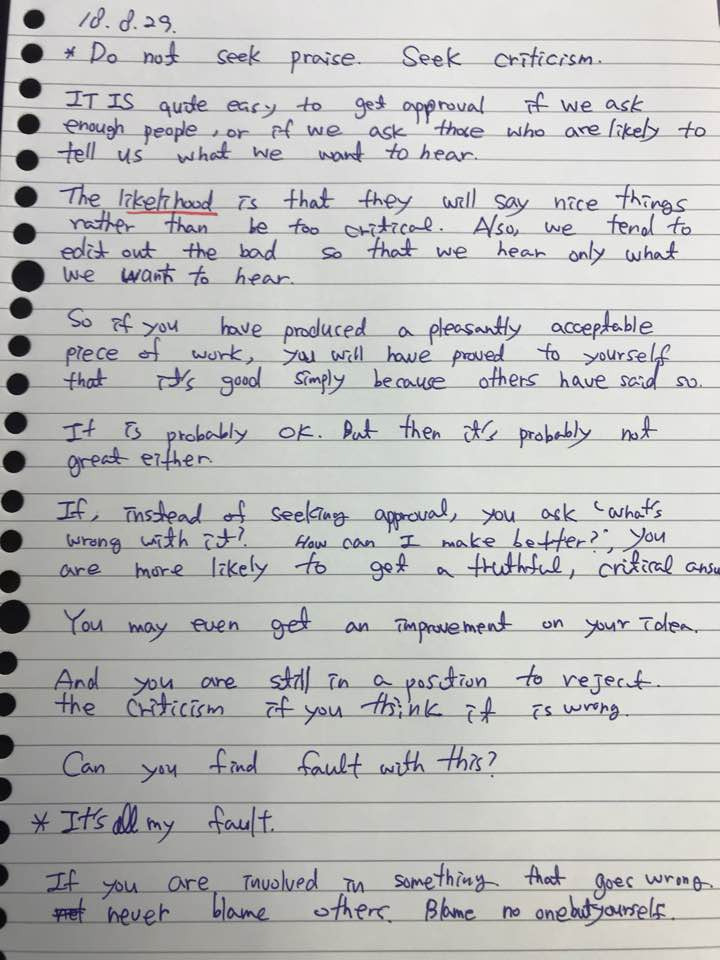 18.8.29.
* Do not seek praise. Seek criticism.
IT IS quite easy to get approval if we ask
enough people, or if we ask those who are likely to
tell us what we want to hear.
The likelihood is that they will say nice things
rather than be too critical. Also, we tend to
edit out the bad so that we hear only what
we want to hear.
So if you have produced a pleasantly acceptable
piece of work, you will have proved to yourself
that it's good simply because others have said so.
It is probably OK. But then it's probably not
great either.
If, instead of seeking approval, you ask 'what's
wrong with it? How can I make better?', you
are more likely to get a truthful, critical answ
You may even get an improvement on your idea.
And you are still in a position to reject.
the criticism if you think it is wrong.
Can you find fault with this?
* It's all my fault.
If you are involved in something that goes wrong.
never blame others. Blame no one but yourself.